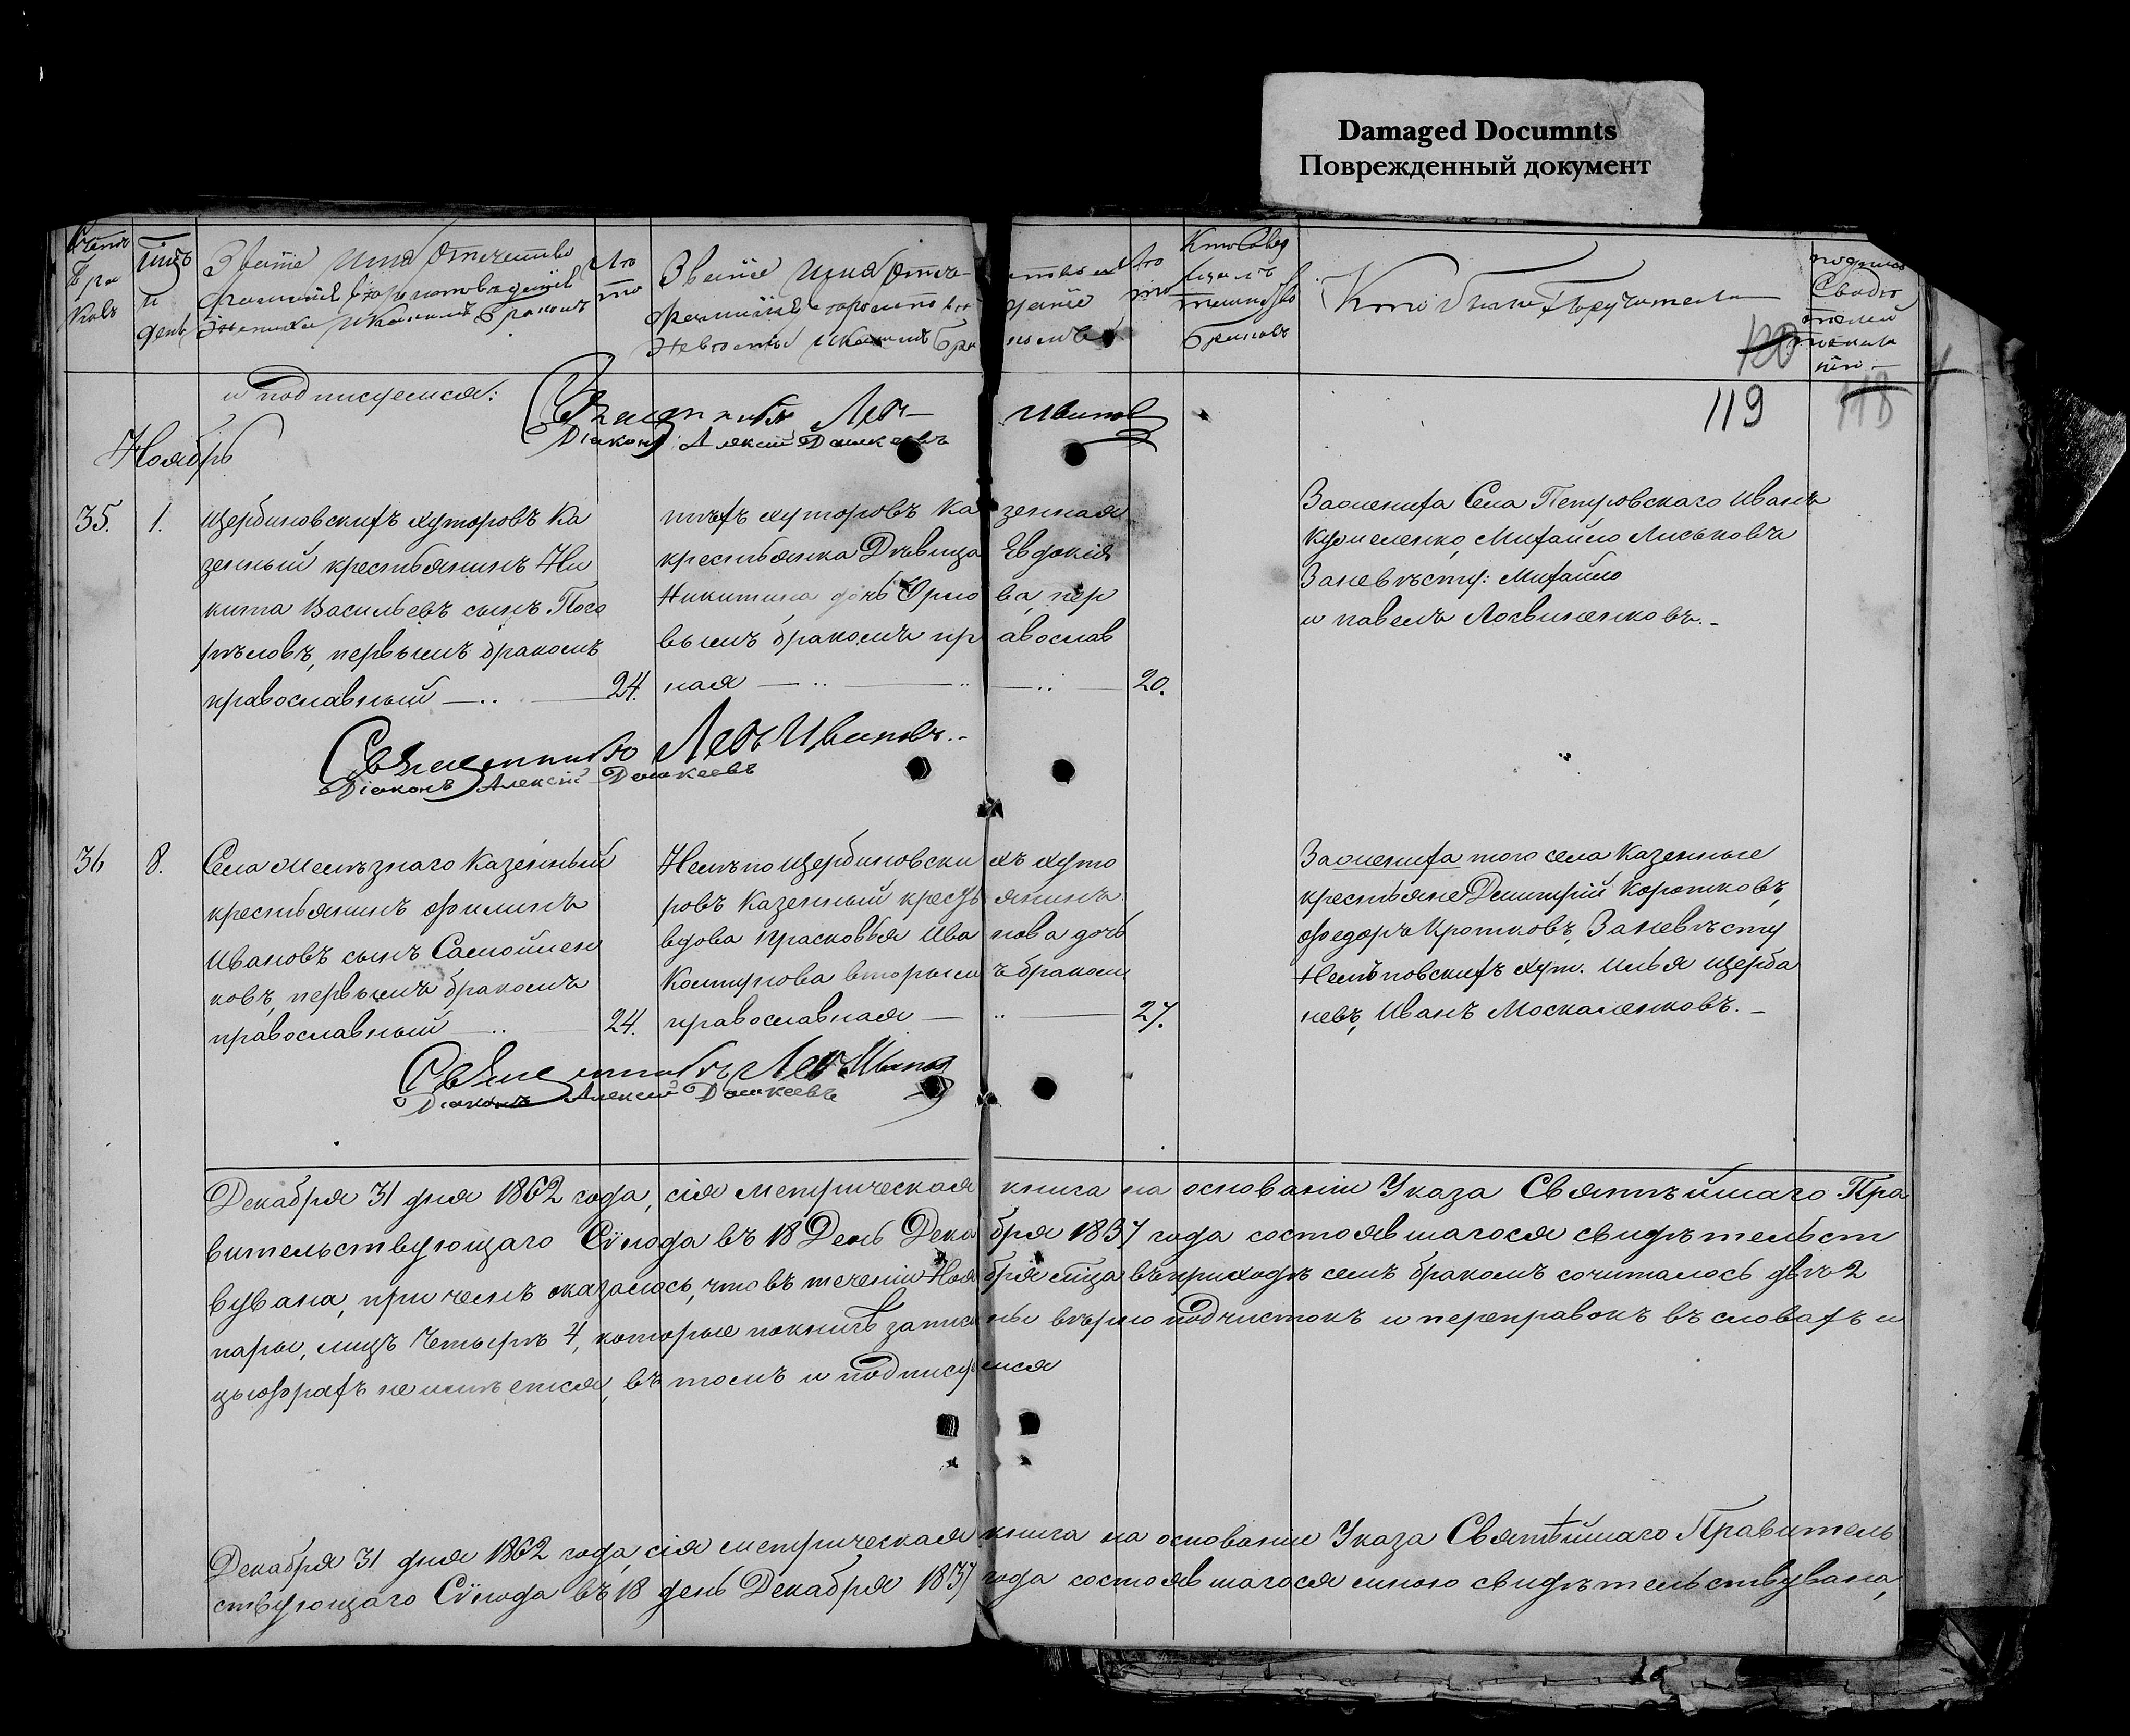 Damaged Documnts
Поврежденный документ
Счетъ бра ковъ
Мцъ и день
Званіе имя отчество фамилія вѣроисповѣданіе жениха и какимъ бракомъ
Лѣ то
Званіе имя отче ство фамилія и вѣроисповѣ даніе невѣсты и какимъ бра комъ
Лѣ то
Кто совер шалъ таинство браковъ
Кто были Поручители
подпись Свидѣ телей
120
119
118
и подписуемся:
Священникъ Левъ Ивановъ
Діаконъ Алексій Дашкеевъ
Ноябрь
35. 1. Щербиновскихъ хуторовъ Ка
зенный крестьянинъ Ни
кита Васильевъ сынъ Пого
рѣловъ, первымъ бракомъ
православный 24.
тѣхъ хуторовъ казенная
крестьянка Дѣвица Евдокія
Никитина дочь Орлова, пер
вымъ бракомъ православ
ная 20.
За жениха Села Петровскаго Иванъ
Михайло Лиськовъ
За невѣсту: Михайло
и павелъ Логвиненковъ.
Священникъ Левъ Ивановъ.
Діаконъ Алексій Дашкеевъ
36 8. Села Желѣзнаго Казенный
крестьянинъ Филипъ
Ивановъ сынъ Самойлен
ковъ, первымъ бракомъ
православный 24.
Нелѣпо Щербиновскихъ хуто
ровъ Казенный крестьянинъ
вдова Прасковья Иванова дочь
вторымъ бракомъ
православная 27.
За жениха того села Казенные
крестьяне Димитрій Коротковъ,
Федоръ Кротковъ, За невѣсту
Нелѣповскихъ хут. Илья Щерба
невъ, Иванъ Москаленковъ.
Священникъ Левъ Ивановъ
Діаконъ Алексій Дашкеевъ
Декабря 31 дня 1862 года, сія метрическая книга на основаніи Указа Святѣйшаго Пра
вительствующаго Сѵнода въ 18 День Декабря 1837 года состоявшагося свидѣтельст
вувана, при чемъ оказалось, что въ теченіи Ноября мца въ приходѣ семъ бракомъ сочиталось двѣ 2
пары, лицъ Четыре 4, которые по книгѣ записаны вѣрно подчистокъ и переправокъ въ словахъ и
цыфрахъ не имѣется, въ томъ и подписуемся
Декабря 31 дня 1862 года, сія метрическая книга на основаніи Указа Святѣйшаго Правитель
ствующаго Сѵнода въ 18 день Декабря 1837 года состоявшагося мною свидѣтельствувана,